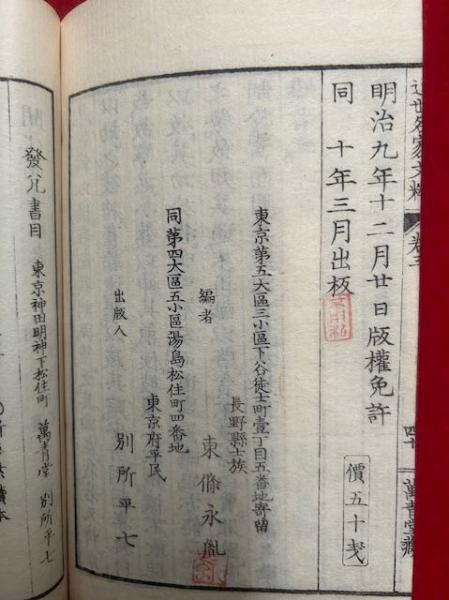 近世名家文粹 卷三
四十 萬青堂藏
明治九年十二月廿日版權免許
同 十年三月出板
價五十戔
東京第五大區三小區下谷徒士町壹丁目五番地寄留
長野縣士族
編者 東條永胤
同第四大區五小區湯島松住町四番地
東京府平民
出版人 別所平七
發兌書目 東京神田明神下松住町 萬青堂 別所平七